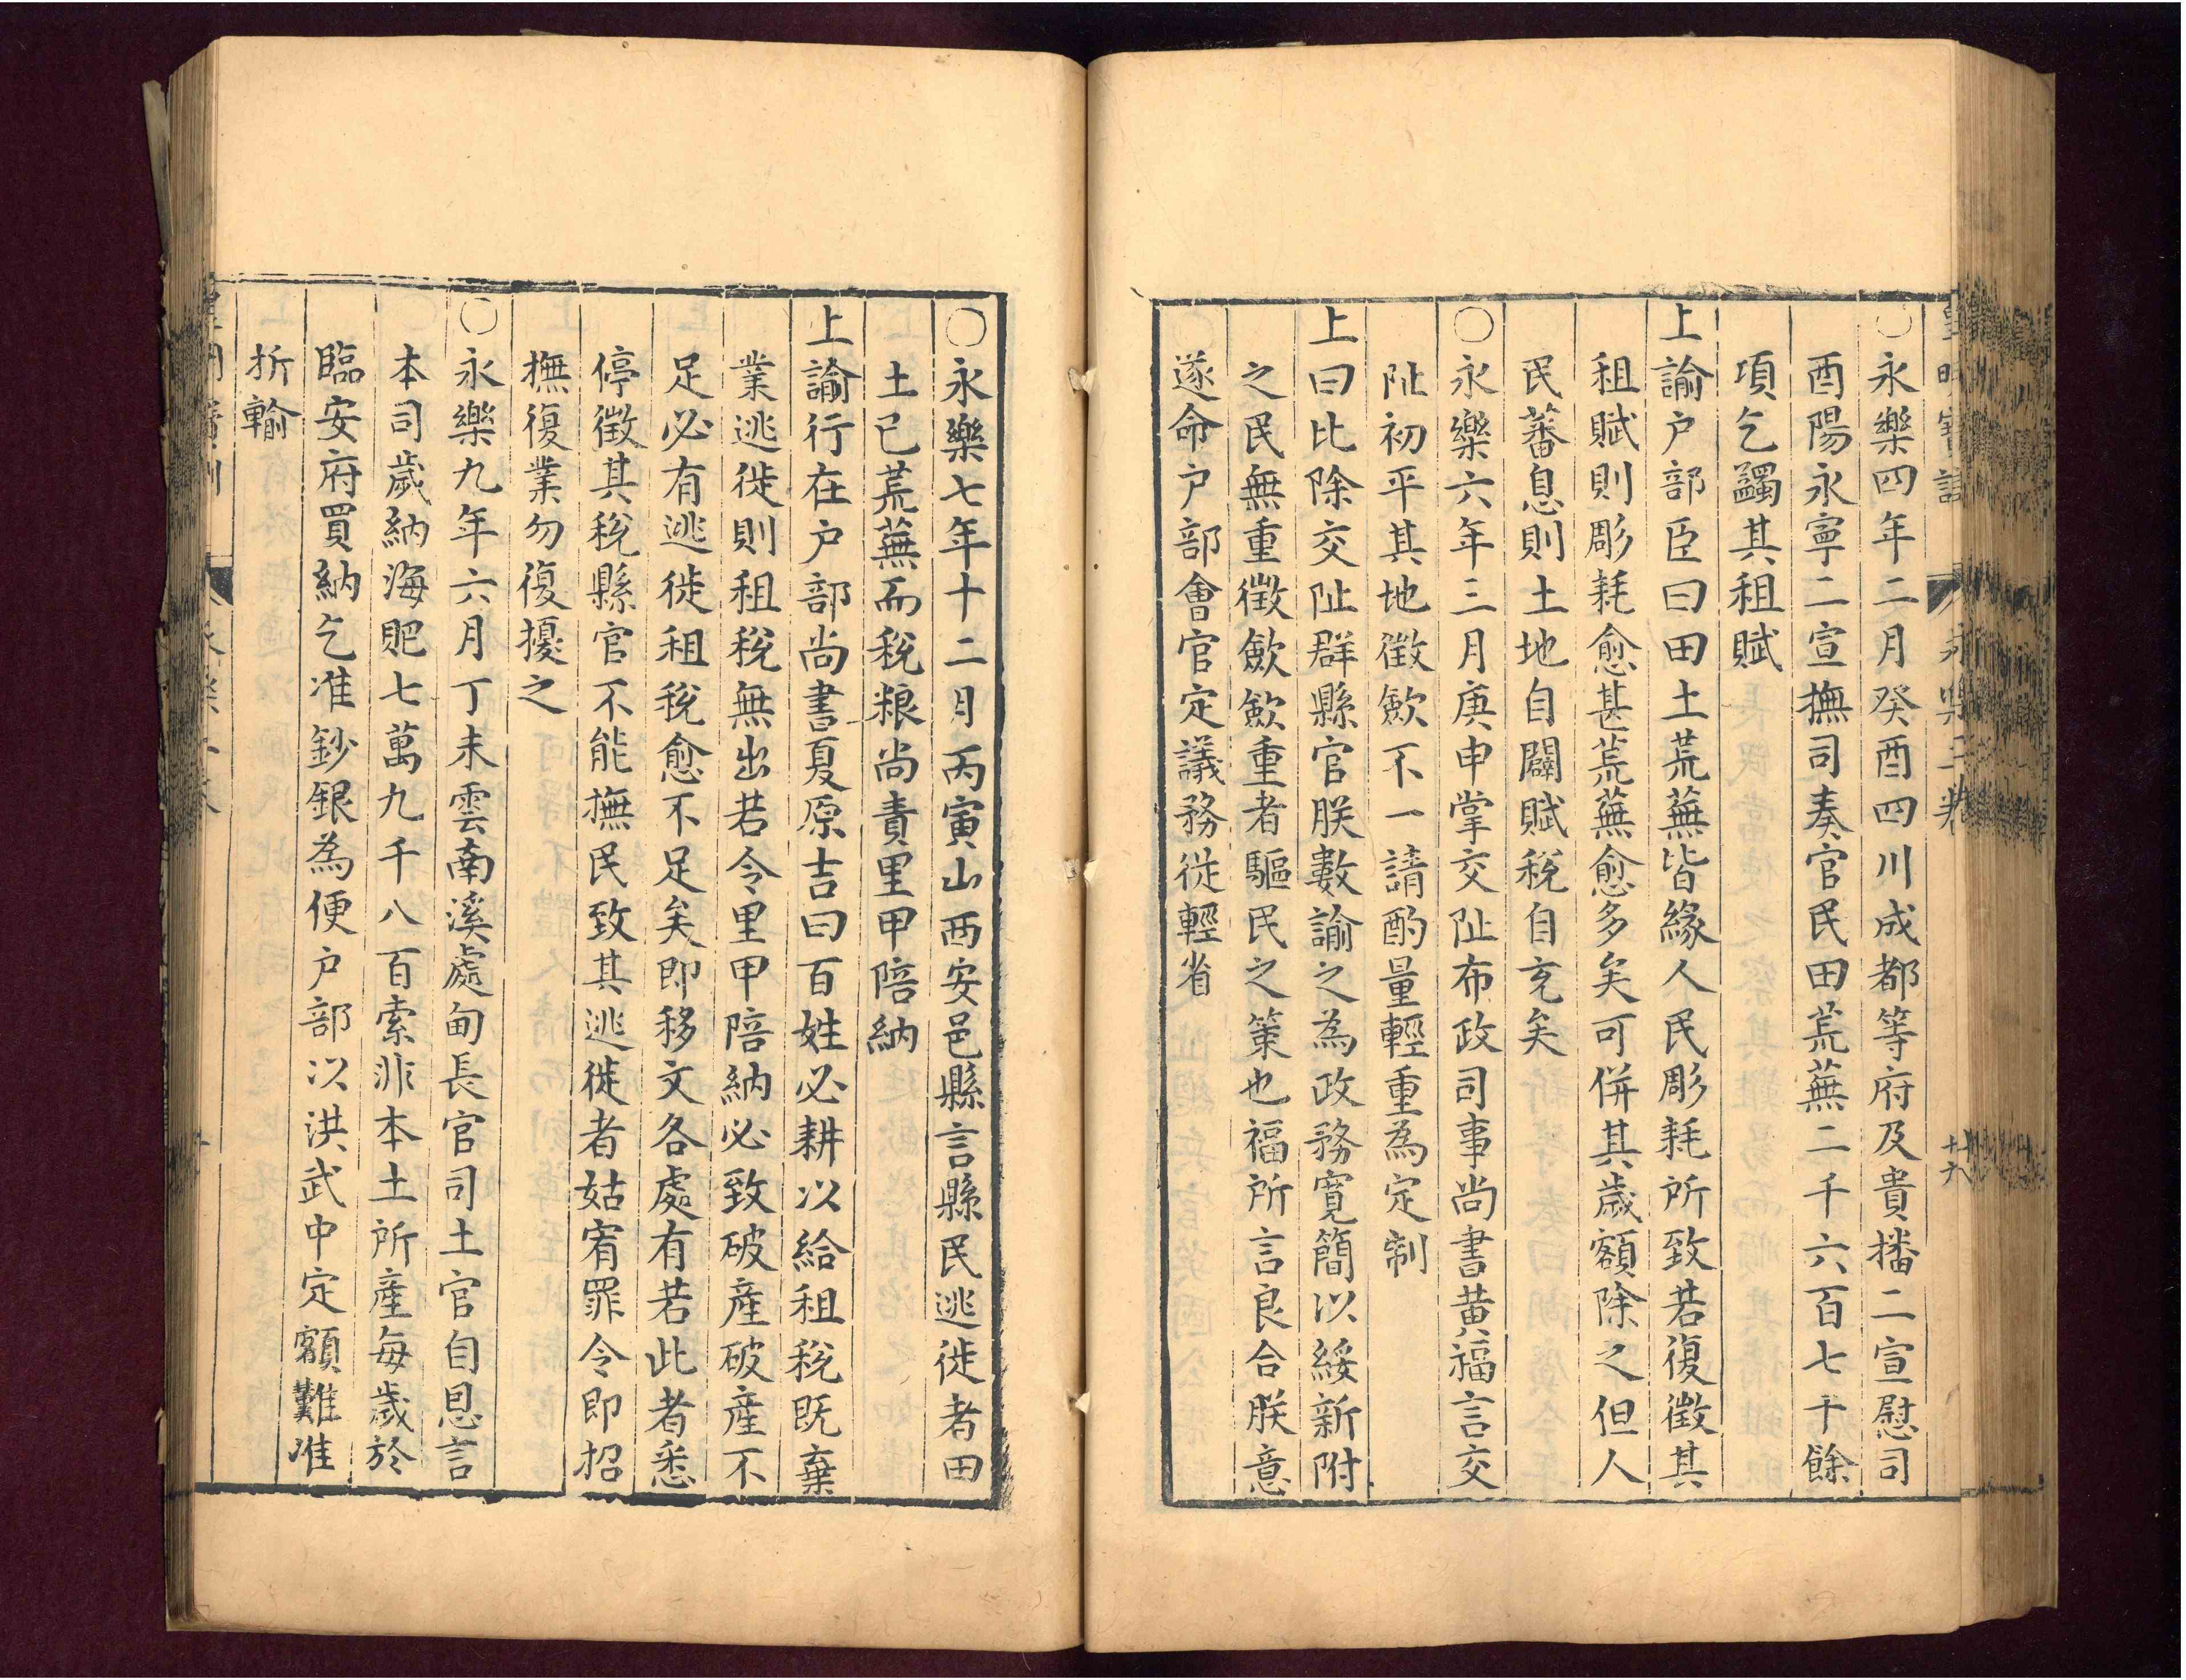 皇明寶訓 永樂二卷 十六
○永樂四年二月癸酉四川成都等府及貴播二宣慰司
酉陽永寧二宣撫司奏官民田荒蕪二千六百七十餘
項乞蠲其租賦
上諭户部臣曰田土荒蕪皆緣人民彫耗所致若復徵其
租賦則彫耗愈甚荒蕪愈多矣可併其歲額除之但人
民蕃息則土地自闢賦稅自充矣
○永樂六年三月庚申掌交阯布政司事尚書黃福言交
阯初平其地徵歛不一請酌量輕重為定制
上曰比除交阯群縣官朕數諭之為政務寛簡以綏新附
之民無重徵歛歛重者驅民之策也福所言良合朕意
遂命户部會官定議務從輕省
○永樂七年十二月丙寅山西安邑縣言縣民逃徙者田
土已荒蕪而稅粮尚責里甲陪納
上諭行在户部尚書夏原吉曰百姓必耕以給租稅既棄
業逃徙則租稅無出若令里甲陪納必致破產破產不
足必有逃徙租稅愈不足矣即移文各處有若此者悉
停徵其稅縣官不能撫民致其逃徙者姑宥罪令即招
撫復業勿復擾之
○永樂九年六月丁未雲南溪處甸長官司土官自恩言
本司歲納海𧵅七萬九千八百索非本土所產每歲於
臨安府買納乞准鈔銀為便户部以洪武中定額難准
折輸